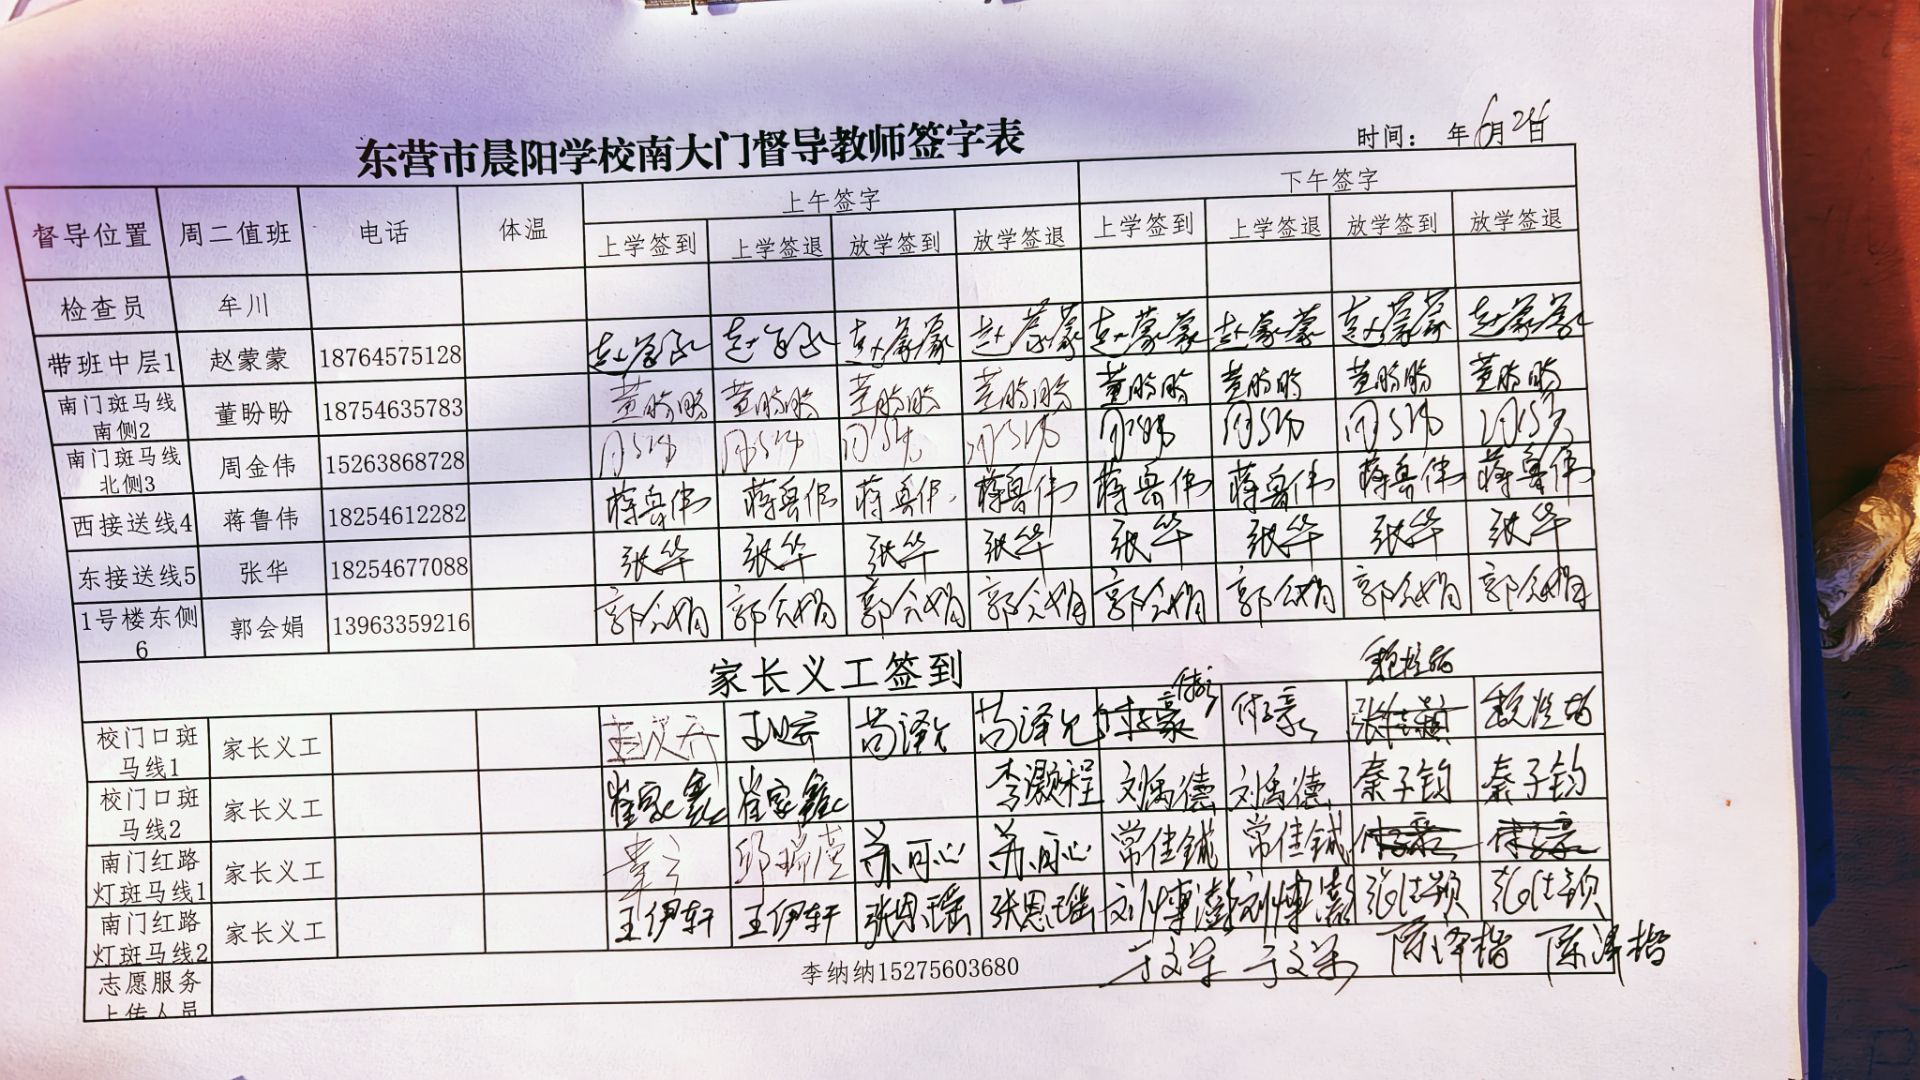 东营市晨阳学校南大门督导教师签字表
时间： 年6月24日
督导位置 周二值班 电话 体温 上午签字 下午签字
上学签到 上学签退 放学签到 放学签退 上学签到 上学签退 放学签到 放学签退
检查员 牟川
带班中层1 赵蒙蒙 18764575128 赵蒙蒙 赵蒙蒙 赵蒙蒙 赵蒙蒙 赵蒙蒙 赵蒙蒙
南门斑马线
南侧2 董盼盼 18754635783 董盼盼 董盼盼 董盼盼 董盼盼 董盼盼 董盼盼 董盼盼 董盼盼
南门斑马线
北侧3 周金伟 15263868728
西接送线4 蒋鲁伟 18254612282 蒋鲁伟 蒋鲁伟 蒋鲁伟 蒋鲁伟 蒋鲁伟 蒋鲁伟 蒋鲁伟 蒋鲁伟
东接送线5 张华 18254677088 张华 张华 张华 张华 张华 张华 张华 张华
1号楼东侧
6 郭会娟 13963359216 郭会娟 郭会娟 郭会娟 郭会娟 郭会娟 郭会娟 郭会娟 郭会娟
家长义工签到
校门口斑
马线1 家长义工 苟泽允 苟泽允
校门口斑
马线2 家长义工 崔家鑫 崔家鑫 李灏程 刘禹德 刘禹德 秦子钧 秦子钧
南门红路
灯斑马线1 家长义工 苏可心 苏可心 常佳铖 常佳铖
南门红路
灯斑马线2 家长义工 王伊轩 王伊轩 张思瑶 张思瑶 刘博澎 刘博澎 张佳颖 张佳颖
志愿服务
上传人员 李纳纳15275603680 于文军 于文军 陈泽楷 陈泽楷